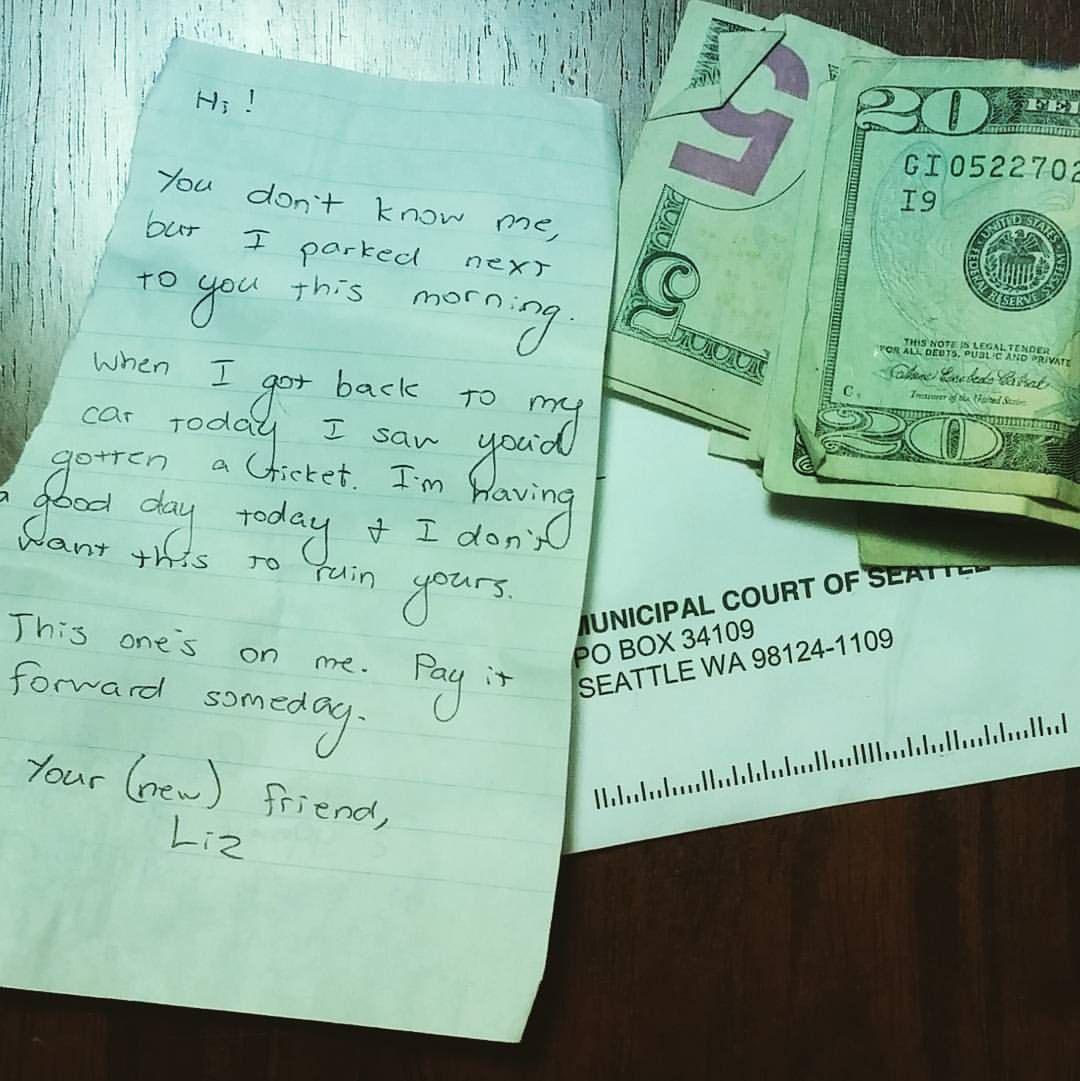 Hi!
You don't know me,
but I parked next
to you this morning.
When I got back to my
car today I saw you'd
gotten a ticket. I'm having
a good day today & I don't
want this to ruin yours.
This one's on me. Pay it
forward someday.
Your (new) friend,
Liz
5
5
20
FE
GI0522702
I9
UNITED STATES
FEDERAL RESERVE SYSTEM
THIS NOTE IS LEGAL TENDER
FOR ALL DEBTS, PUBLIC AND PRIVATE
Treasurer of the United States
20
MUNICIPAL COURT OF SEATTLE
PO BOX 34109
SEATTLE WA 98124-1109